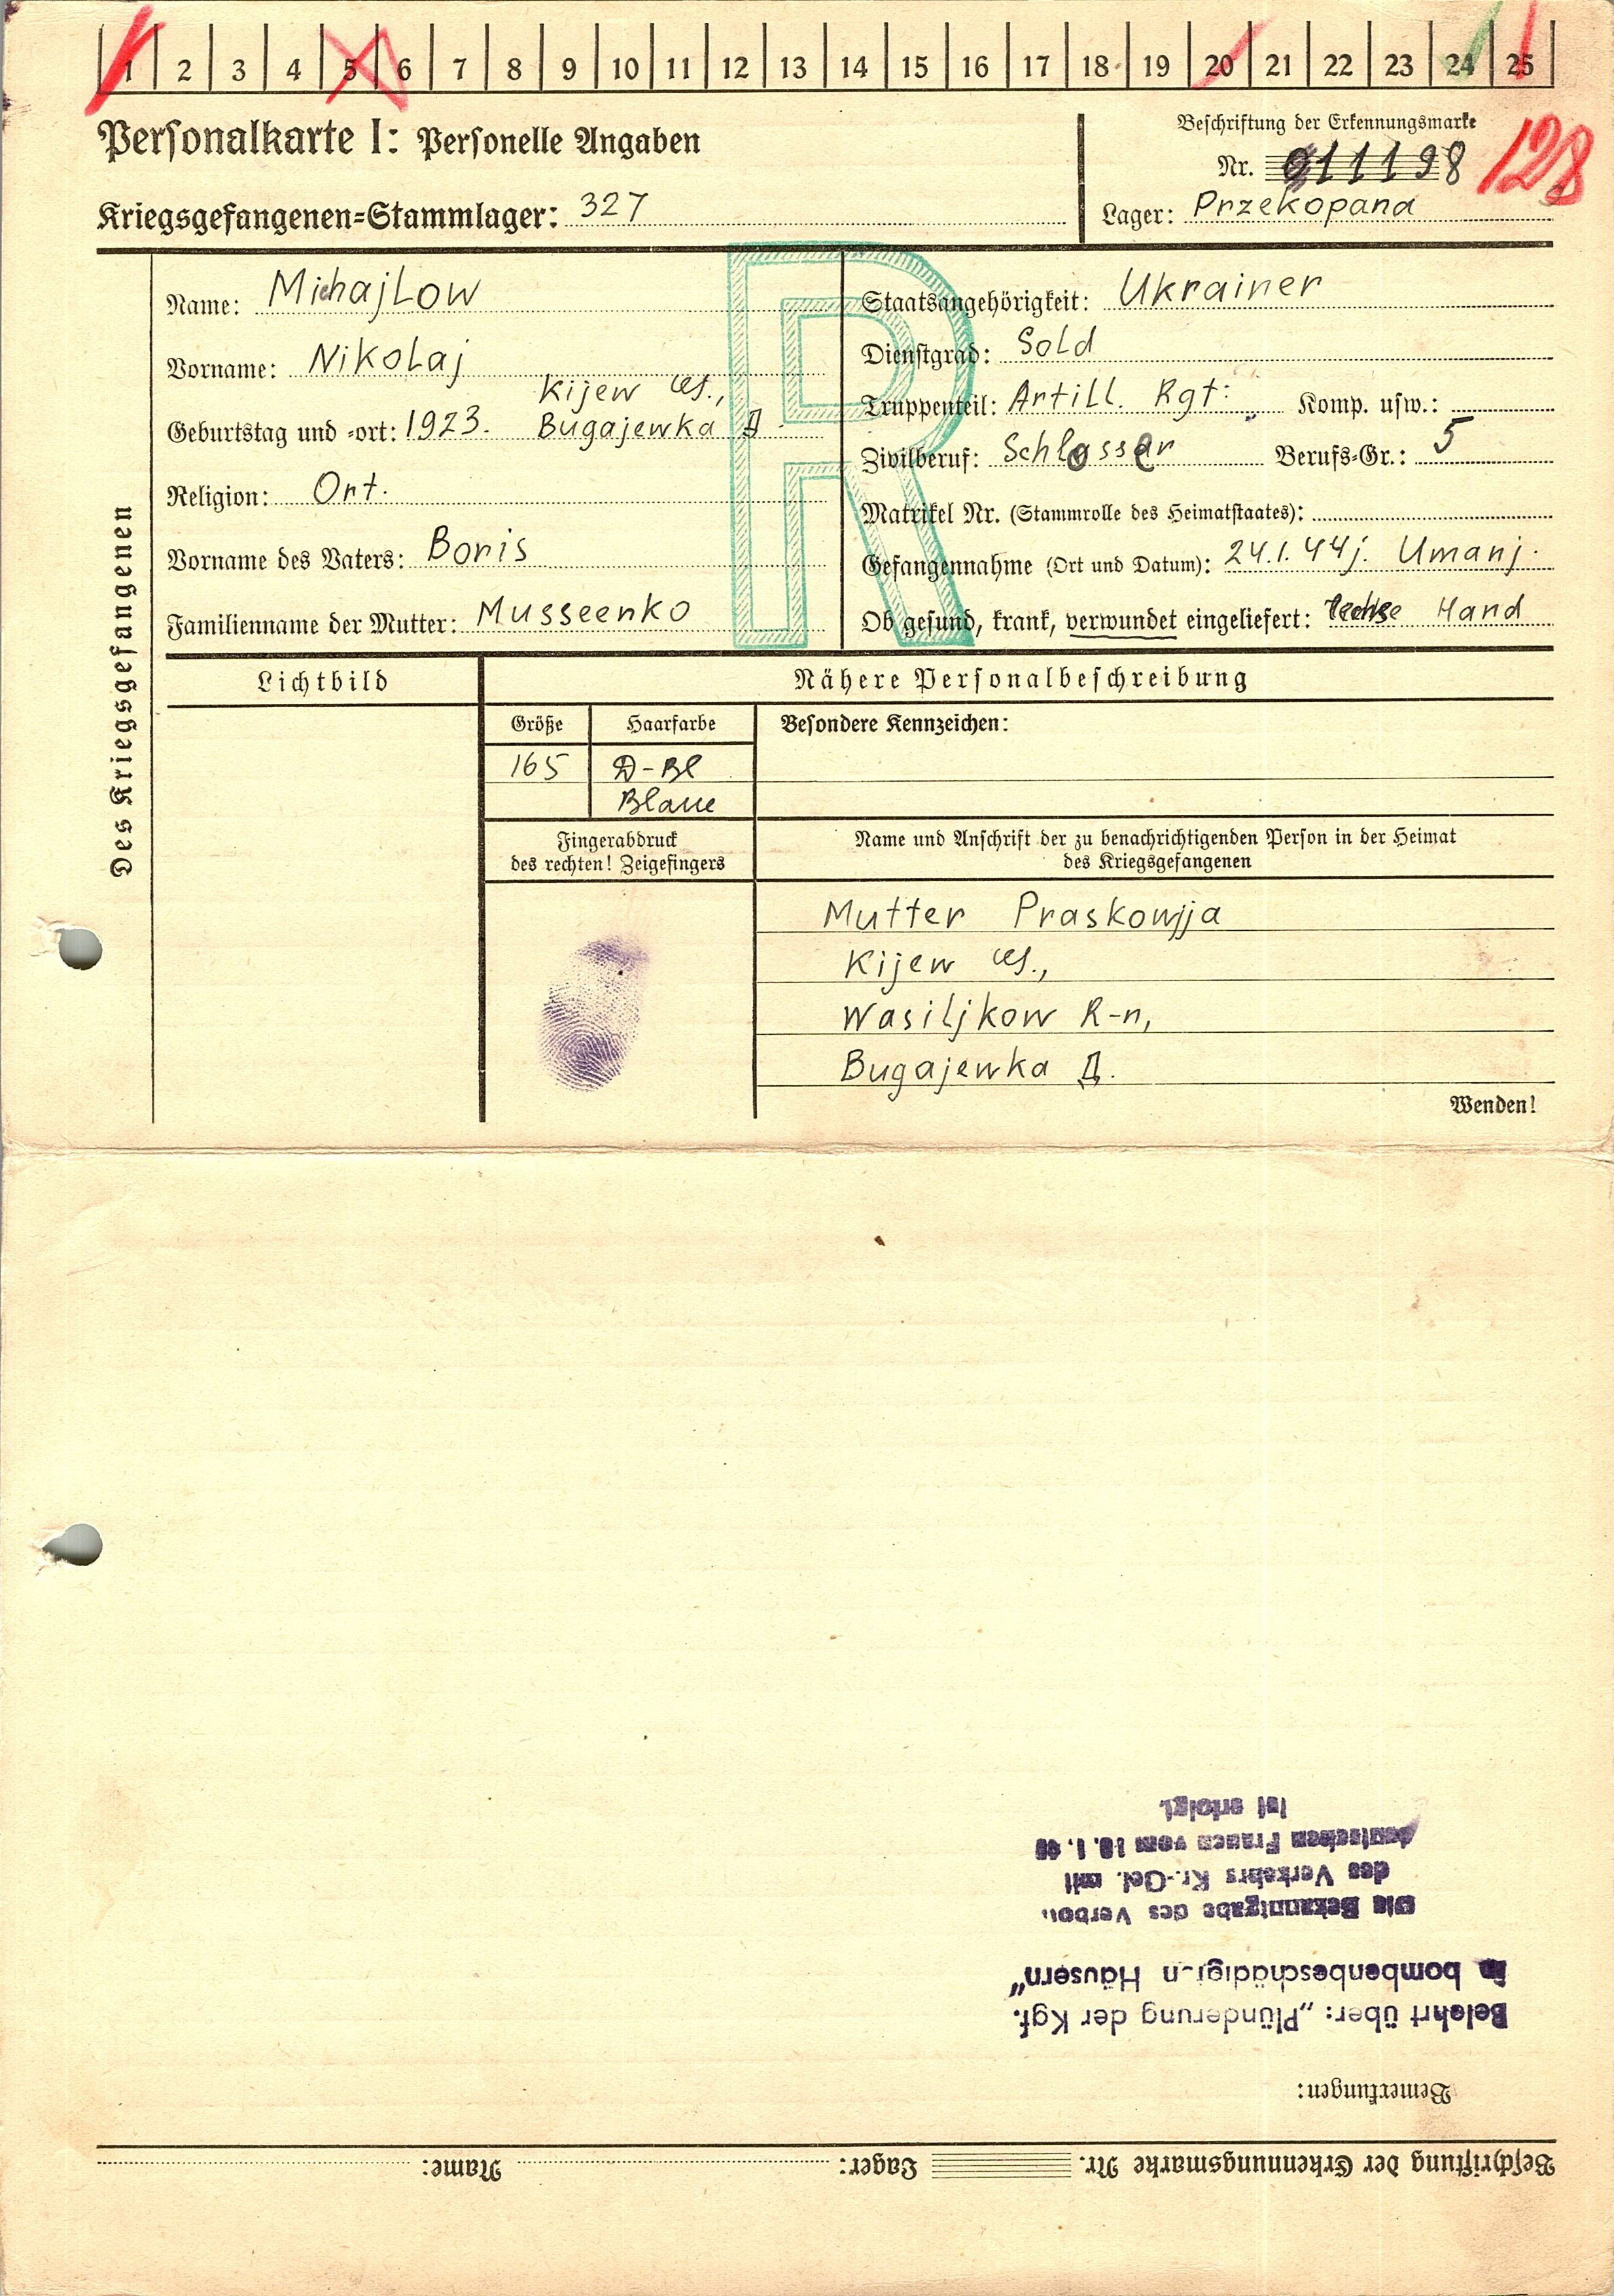 1 2 3 4 5 6 7 8 9 10 11 12 13 14 15 16 17 18 19 20 21 22 23 24 25
Personalkarte I: Personelle Angaben
Beschriftung der Erkennungsmarke
Nr. 11198 128
Kriegsgefangenen-Stammlager: 327
Lager: Przekopana
Des Kriegsgefangenen
R
Name: Michajlow
Vorname: Nikolaj
Kijew
Geburtstag und -ort: 1923. Bugajewka Д
Religion: Ort.
Vorname des Vaters: Boris
Familienname der Mutter: Musseenko
Staatsangehörigkeit: Ukrainer
Dienstgrad: Sold
Truppenteil: Artill. Rgt. Komp. usw.:
Zivilberuf: Schlosser Berufs-Gr.: 5
Matrikel Nr. (Stammrolle des Heimatstaates):
Gefangennahme (Ort und Datum): 24.1.44j. Umanj.
Ob gesund, krank, verwundet eingeliefert: Hand
Lichtbild
Nähere Personalbeschreibung
Größe Haarfarbe Besondere Kennzeichen:
165 D-Bl
Blaue
Fingerabdruck
des rechten! Zeigefingers
Name und Anschrift der zu benachrichtigenden Person in der Heimat
des Kriegsgefangenen
Mutter Praskowjja
Kijew
Wasiljkow R-n,
Bugajewka Д.
Wenden!
Beschriftung der Erkennungsmarke Nr. Lager: Name:
Bemerkungen:
Belehrt über: „Plünderung der Kgf.
in bombenbeschädigten Häusern"
Die Bekanntgabe des Verbot.
des Verkehrs Kr.-Gef. mit
deutschen Frauen vom
ist erfolgt.